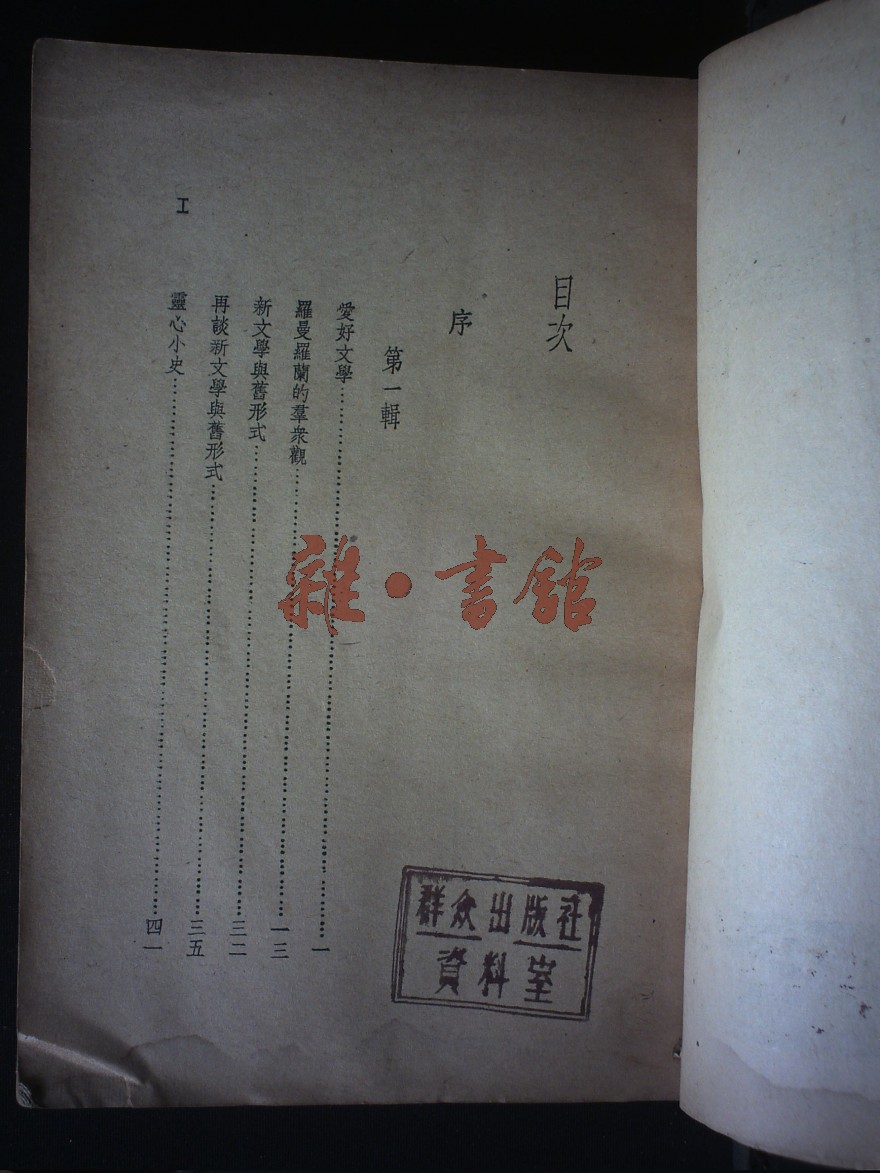 目次
序
第一輯
愛好文學……一
羅曼羅蘭的羣衆觀……一三
新文學與舊形式……三二
再談新文學與舊形式……三五
靈心小史……四一
I
雜·書館
群众出版社
資料室